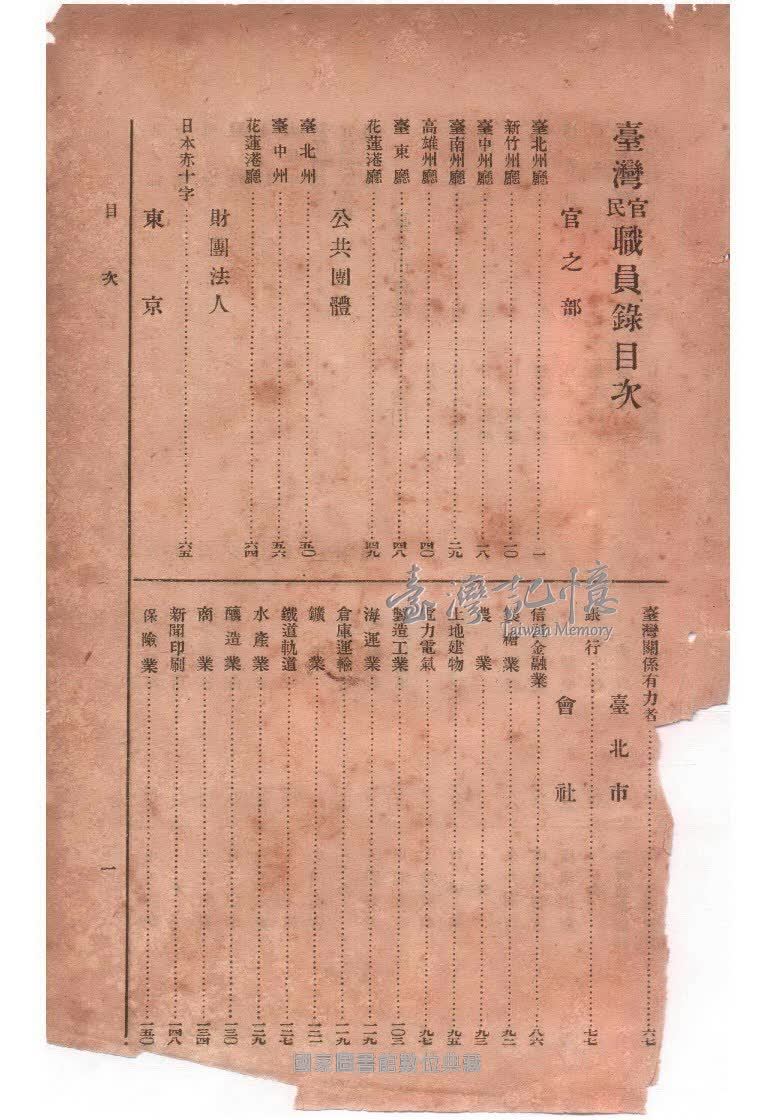 臺灣官民職員錄目次
官之部
臺北州廳……一
新竹州廳……一〇
臺中州廳……一八
臺南州廳……二九
高雄州廳……四〇
臺東廳……四八
花蓮港廳……四九
公共團體
臺北州……五〇
臺中州……五六
花蓮港廳……六四
財團法人
日本赤十字……六五
東京
臺灣關係有力者……六七
臺北市
銀行……七七
會社
信託金融業……八六
製糖業……九二
農業……九三
土地建物……九五
電力電氣……九七
製造工業……一〇三
海運業……一一九
倉庫運輸……一一九
鑛業……一二二
鐵道軌道……一二七
水產業……一二九
釀造業……一三〇
商業……一三四
新聞印刷……一四八
保險業……一五〇
目次
一
臺灣記憶
Taiwan Memory
國家圖書館數位典藏